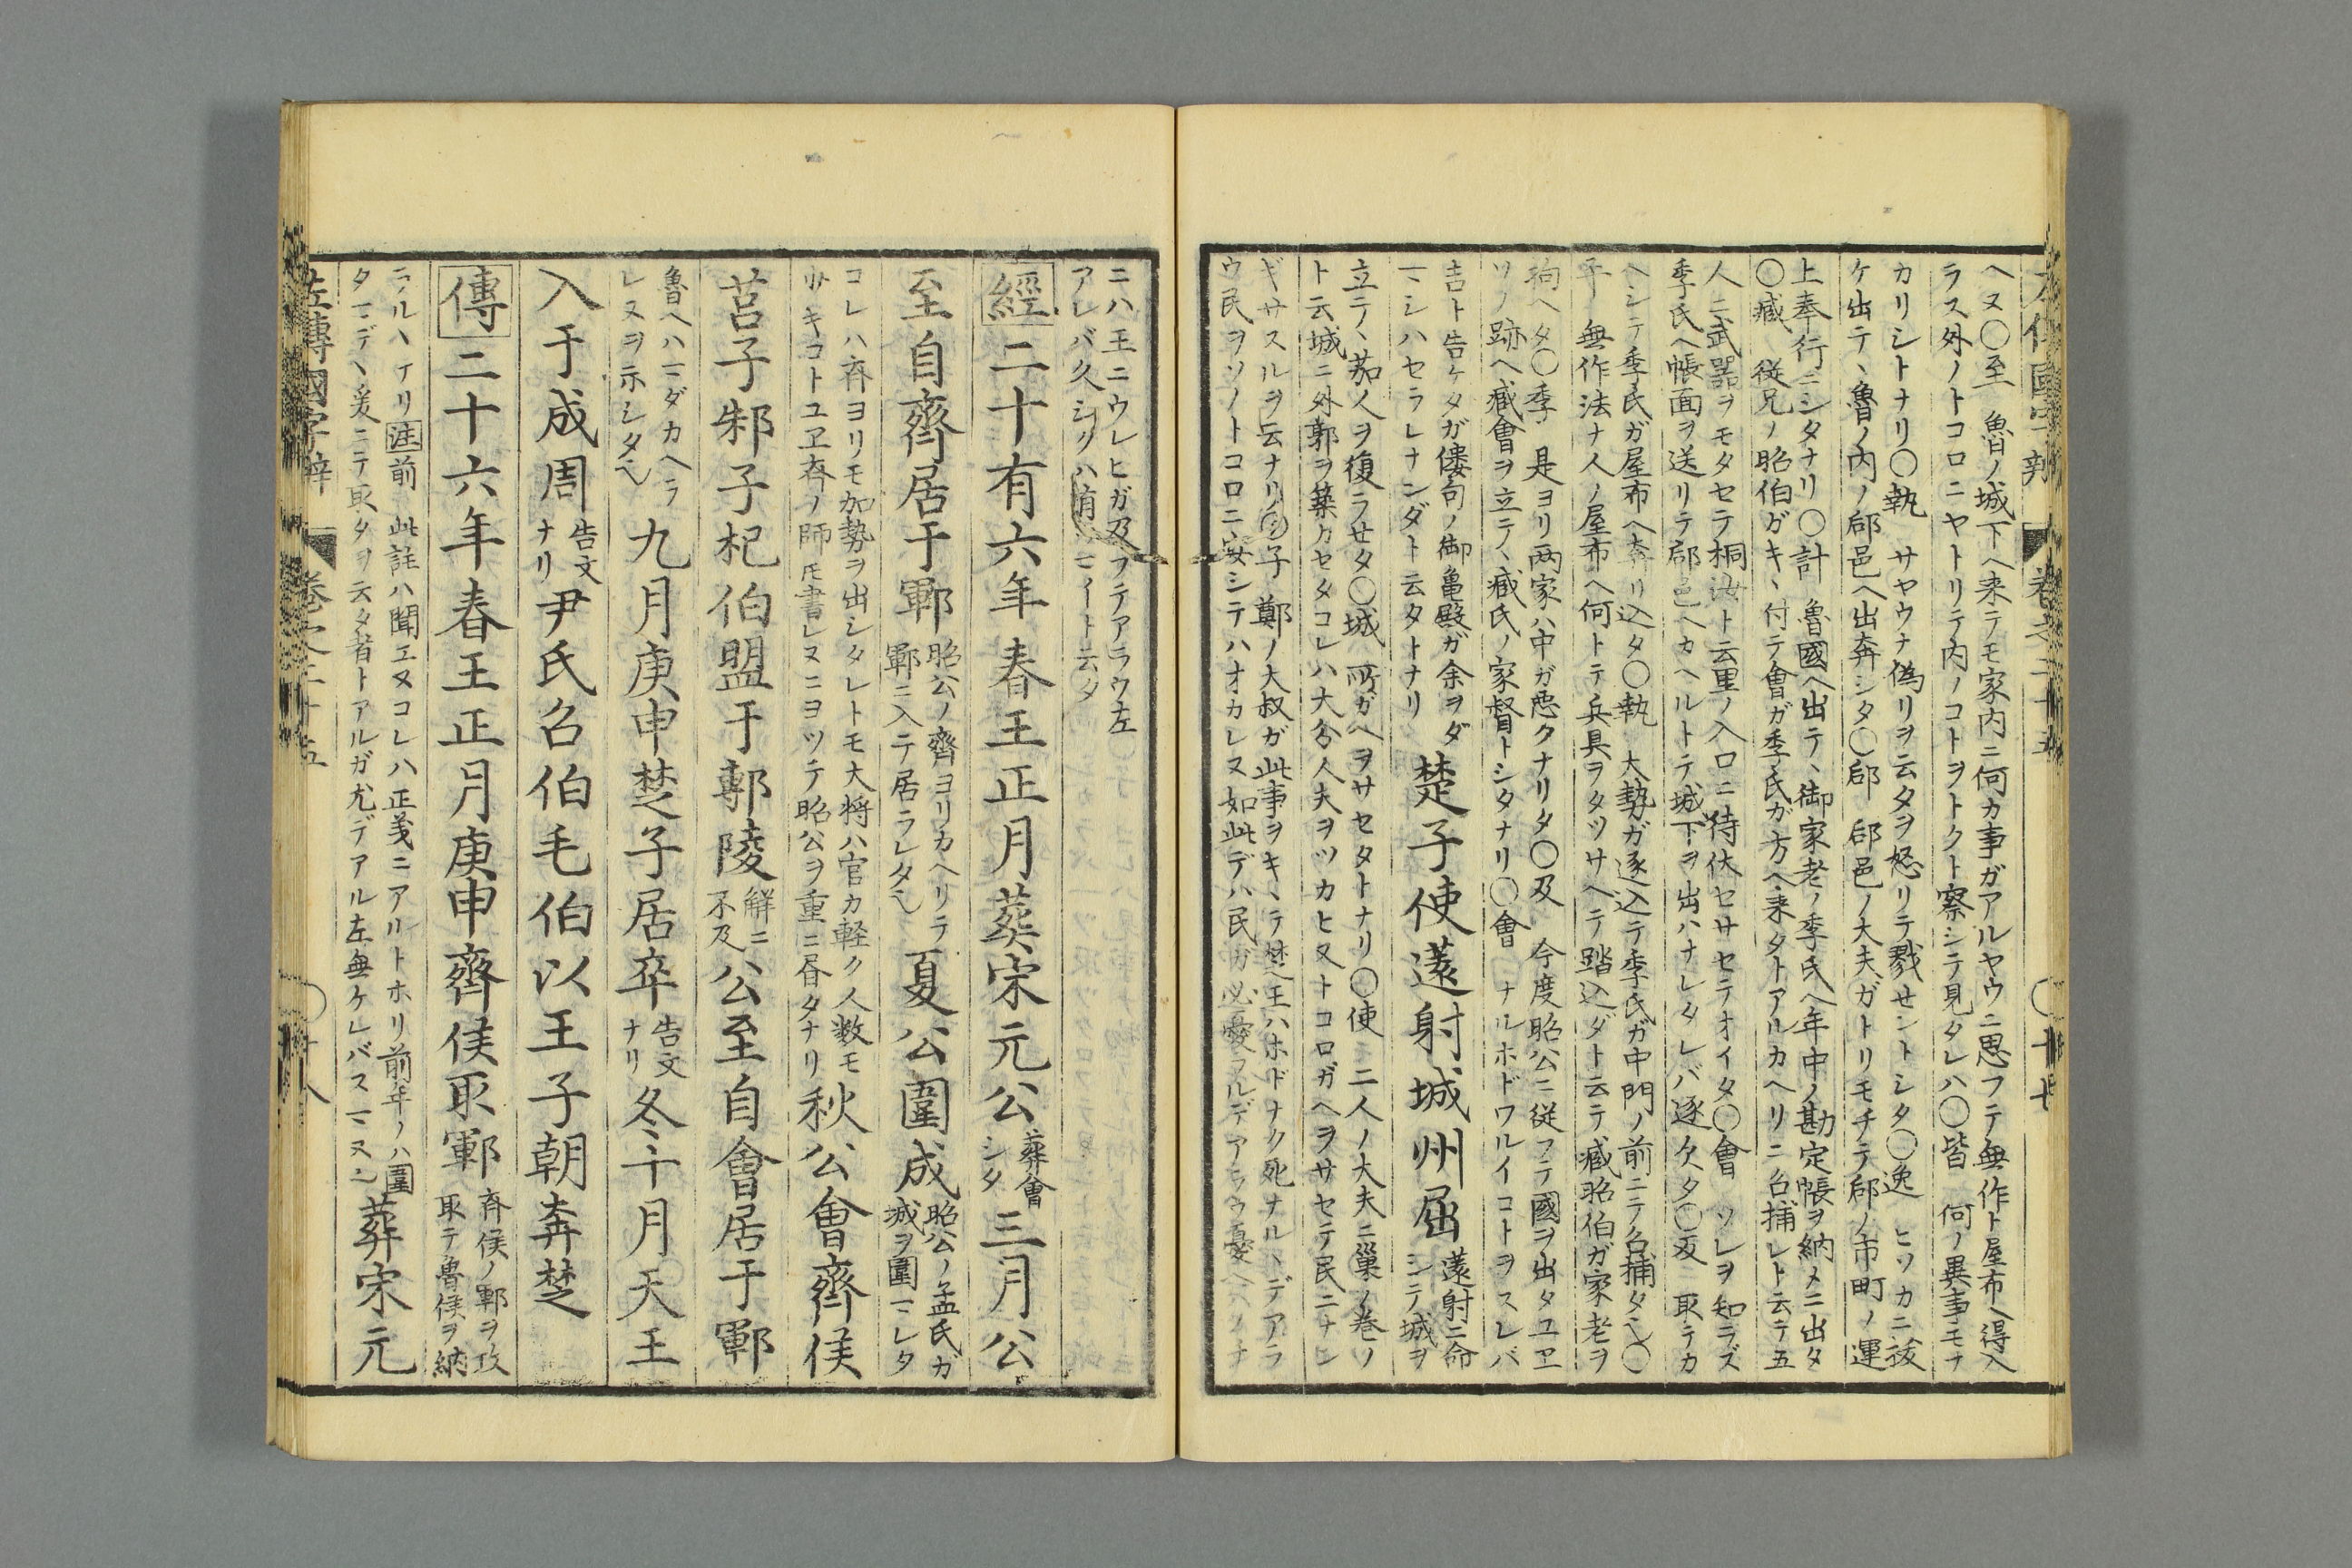 ヘヌ〇至 魯ノ城下ヘ来テモ家内ニ何カ事ガアルヤウニ思フテ無作ト屋布ヘ得入
ラス外ノトコロニヤトリテ内ノコトヲトクト察シテ見タレハ〇皆 何ノ異事モナ
カリシトナリ〇執 サヤウナ偽リヲ云タヲ怒リテ戮せントシタ〇逸 ヒソカニ拔
ケ出テヽ魯ノ内ノ郈邑ヘ出奔シタ〇郈 郈邑ノ大夫ガトリモチテ郈ノ市町ノ運
上奉行ニシタナリ〇計 魯國ヘ出テヽ御家老ノ季氏ヘ年中ノ勘定帳ヲ納メニ出タ
〇臧 従兄ノ昭伯ガキヽ付テ會ガ季氏カ方ヘ来タトアルカヘリニ召捕レト云テ五
人ニ武器ヲモタセテ桐汝ト云里ノ入口ニ待伏セサセテオイタ〇會 ソレヲ知ラズ
季氏ヘ帳面ヲ送リテ郈邑ヘカヘルトテ城下ヲ出ハナレタレバ逐欠タ〇反 取テカ
ヘシテ季氏ガ屋布ヘ奔リ込タ〇執 大勢ガ逐込テ季氏ガ中門ノ前ニテ召捕タ〇
平 無作法ナ人ノ屋布ヘ何トテ兵具ヲタツサヘテ踏込ダト云テ臧昭伯ガ家老ヲ
拘ヘタ〇季 是ヨリ両家ハ中ガ悪クナリタ〇及 今度昭公ニ従フテ國ヲ出タユヱ
ソノ跡ヘ臧會ヲ立テヽ臧氏ノ家督トシタナリ〇會 ナルホドワルイコトヲスレバ
吉ト告ケタガ僂句ノ御亀殿ガ余ヲダ
マシハセラレナンダト云タトナリ
楚子使薳射城州屈
薳射ニ命
シテ城ヲ
立テヽ茄人ヲ復ラせタ〇城 所ガヘヲサセタトナリ〇使 二人ノ大夫ニ巢ノ巻ソ
ト云城ニ外郭ヲ築カセタコレハ大分人夫ヲツカヒ又トコロガヘヲサセテ民ニナン
ギサスルヲ云ナリ 子 鄭ノ大叔ガ此事ヲキヽテ楚王ハホドナク死ナルヽデアラ
ウ民ヲソノトコロニ安シテハオカレヌ如此デハ民ガ必憂フルデアラウ憂ヘ
ニハ王ニウレヒガ及フテアラウ左
アレバ久シリハ マイト云タ
經二十有六年春王正月葬宋元公
葬會
シタ
三月公
至自齊居于鄆
昭公ノ齊ヨリカヘリテ
鄆ニ入テ居ラレタ
夏公圍成
昭公ノ孟氏ガ
城ヲ圍マレタ
コレハ齊ヨリモ加勢ヲ出シタレトモ大将ハ官カ軽ク人数モ
少キコトユヱ齊ノ師 書レヌニヨツテ昭公ヲ重ニ昏タナリ
秋公會齊侯
莒子邾子杞伯盟于鄟陵
解ニ
不及
公至自會居于鄆
魯ヘハマダカヘラ
レヌヲ示シタ
九月庚申楚子居卒
告文
ナリ
冬十月天王
入于成周
告文
ナリ
尹氏召伯毛伯以王子朝奔楚
傳二十六年春王正月庚申齊侯取鄆
齊侯ノ鄆ヲ攻
取テ魯侯ヲ納
前 此註ハ聞エヌコレハ正義ニアルトホリ前年ノハ圍
タマデヽ爰ニテ取タヲ云タ者トアルガ尤デアル左無ケレバスマヌ
葬宋元
左傳國字辯 巻之二十五 〇十八